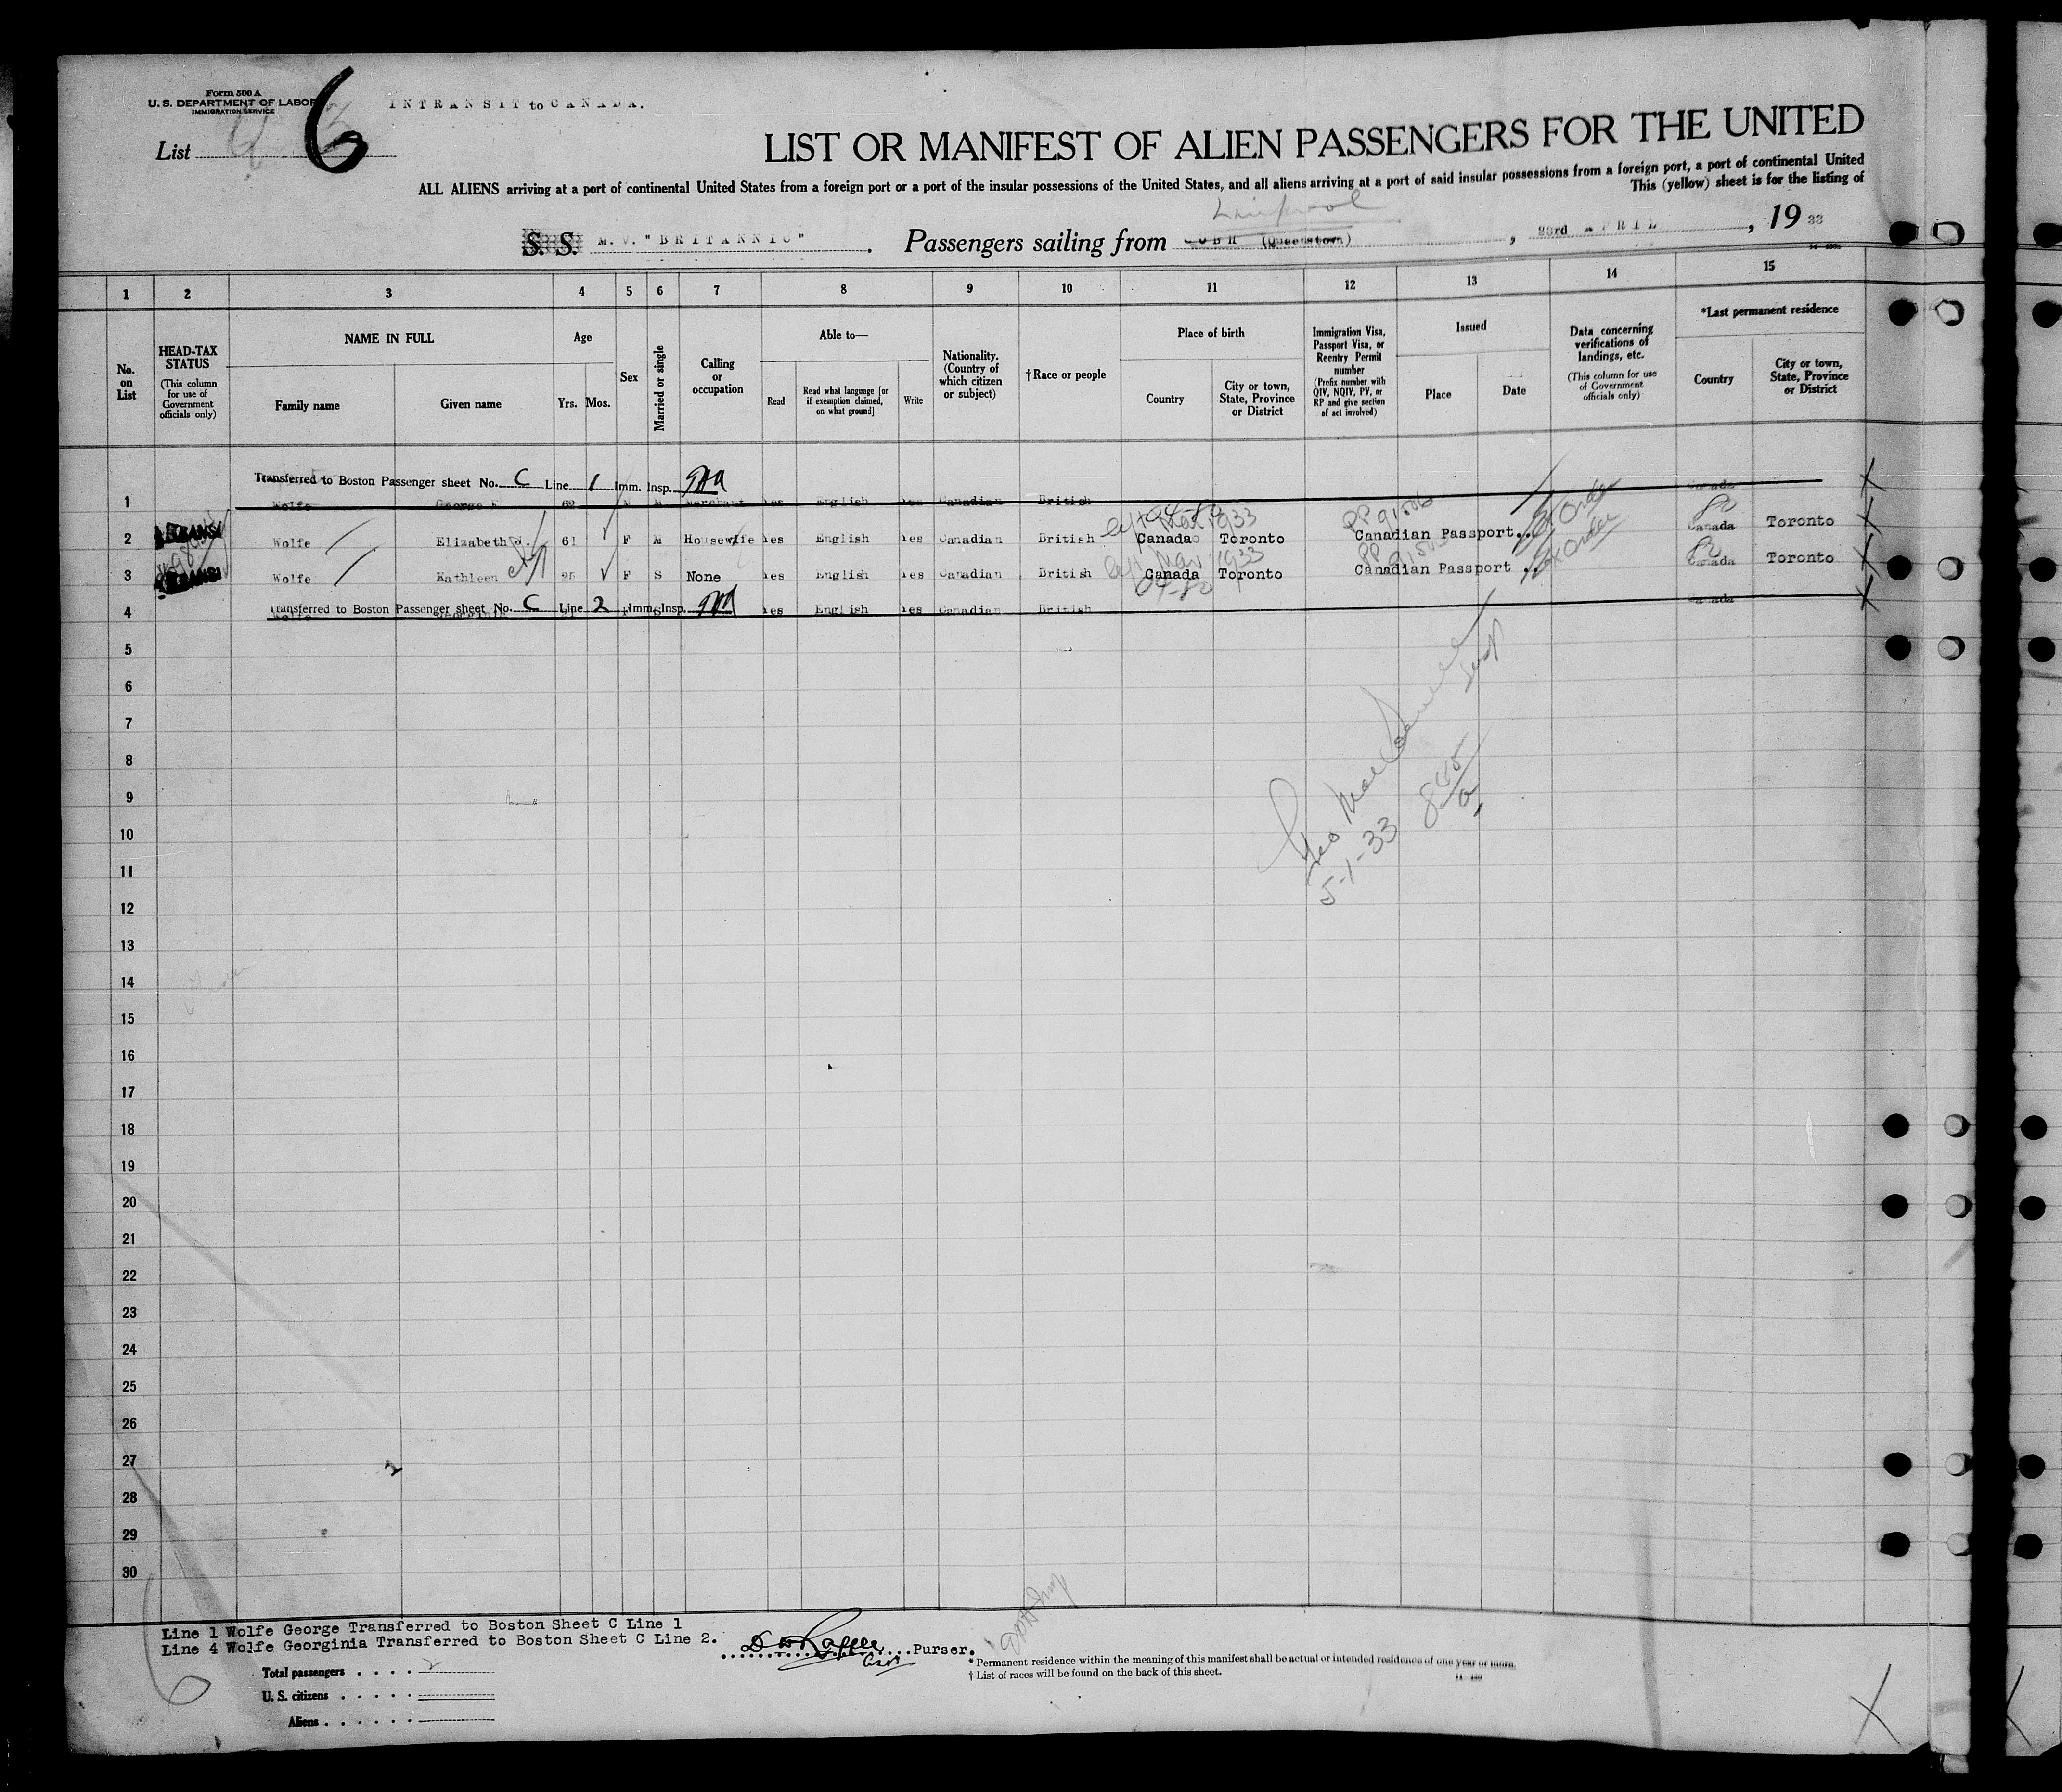 Form 500 A
U. S. DEPARTMENT OF LABOR
IMMIGRATION SERVICE
INTRANSIT to CANADA.
List 6
LIST OR MANIFEST OF ALIEN PASSENGERS FOR THE UNITED
ALL ALIENS arriving at a port of continental United States from a foreign port or a port of the insular possessions of the United States, and all aliens arriving at a port of said insular possessions from a foreign port, a port of continental United
This (yellow) sheet is for the listing of
Liverpool
S. S. M.V. "BRITANNIC". Passengers sailing from COBH (Queenstown), 23rd APRIL, 19 33
1 2 3 4 5 6 7 8 9 10 11 12 13 14 15
No. on List
HEAD-TAX STATUS
(This column for use of Government officials only)
NAME IN FULL
Family name Given name
Age
Yrs. Mos.
Sex
Married or single
Calling or occupation
Able to—
Read
Read what language [or if exemption claimed, on what ground]
Write
Nationality. (Country of which citizen or subject)
†Race or people
Place of birth
Country
City or town, State, Province or District
Immigration Visa, Passport Visa, or Reentry Permit number
(Prefix number with QIV, NQIV, PV, or RP and give section of act involved)
Issued
Place Date
Data concerning verifications of landings, etc.
(This column for use of Government officials only)
*Last permanent residence
Country
City or town, State, Province or District
Transferred to Boston Passenger sheet No. C Line 1 Imm. Insp.
1 Wolfe George 62 M M Merchant Yes English Yes Canadian British Canada
2 Wolfe Elizabeth 61 F M Housewife Yes English Yes Canadian British Canada Toronto Canadian Passport.. Canada Toronto
3 Wolfe Kathleen 25 F S None Yes English Yes Canadian British Canada Toronto Canadian Passport .. Canada Toronto
Transferred to Boston Passenger sheet No. C Line 2 Imm. Insp.
4 Wolfe Yes English Yes Canadian British Canada
5
6
7
8
9
10
11
12
13
14
15
16
17
18
19
20
21
22
23
24
25
26
27
28
29
30
5-1-33
Line 1 Wolfe George Transferred to Boston Sheet C Line 1
Line 4 Wolfe Georginia Transferred to Boston Sheet C Line 2.
Purser.
Total passengers . . . . 2
U. S. citizens . . . . .
Aliens . . . . . .
* Permanent residence within the meaning of this manifest shall be actual or intended residence of one year or more.
† List of races will be found on the back of this sheet.